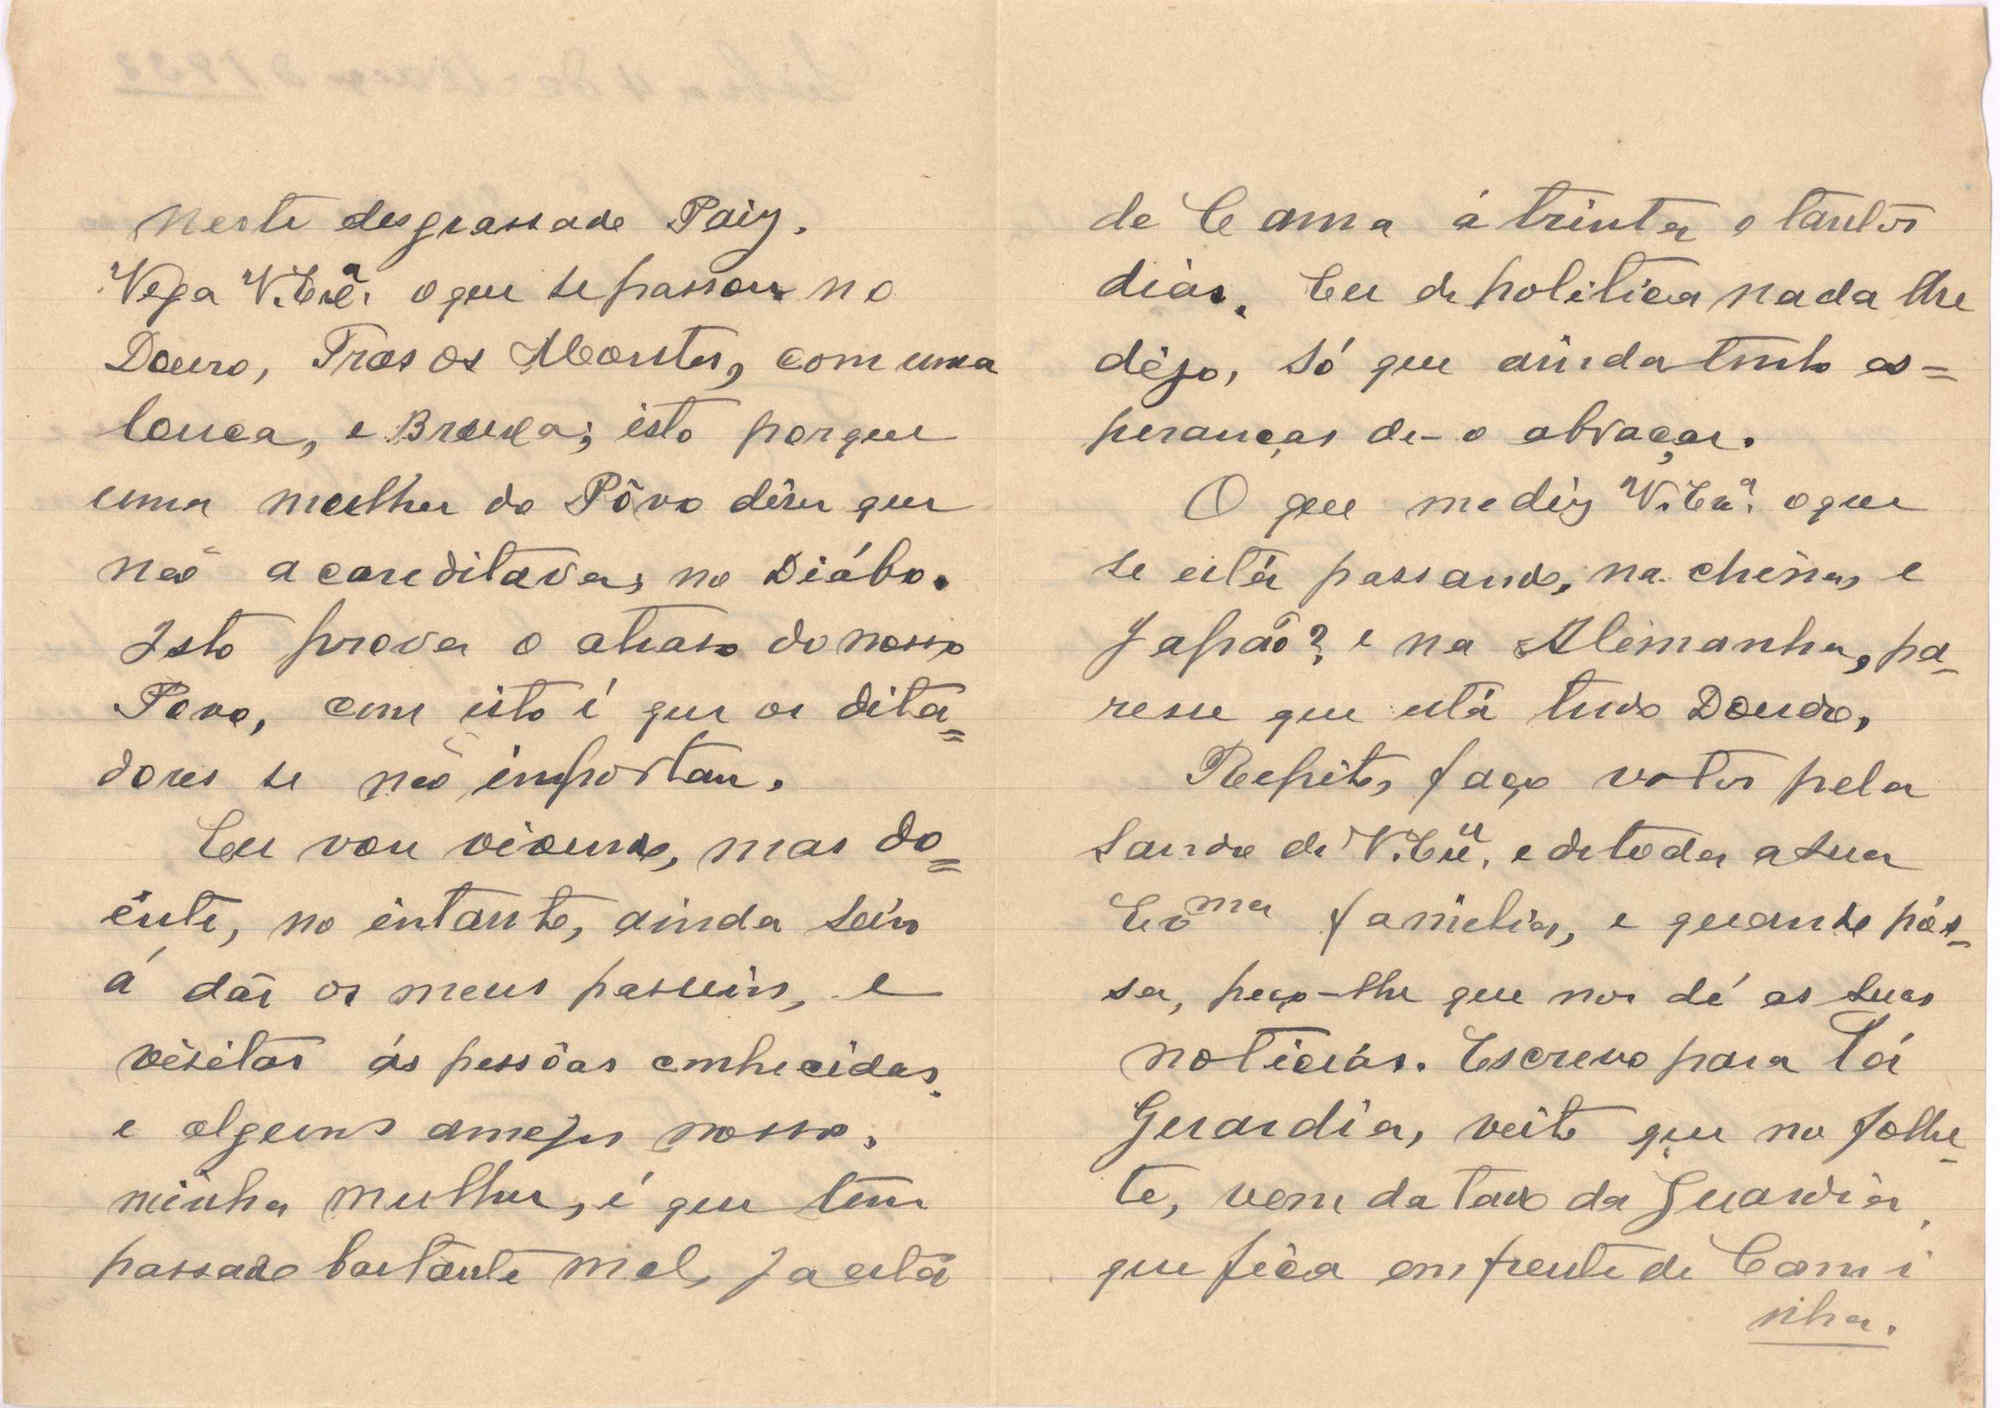 neste desgrassado Paiz.
Veja V. Exª. o que se passou no
Douro, Tras os Montes, com uma
louca, e Bruxa; isto porque
uma mulher do Pôvo disse que
não acareditava, no Diábo.
Isto prova o atraso do nosso
Povo, com isto é que os dita=
dores se não importan.
Eu vou vivendo, mas do=
ente, no intanto, ainda saio
á dár os meus passeios, e
visitar ás pessôas conhecidas,
e alguns amigos nossos.
minha mulher, é que tem
passado bastante mal, Ja está
de Cama á trinta e tantos
dias. Eu de politica nada lhe
digo, só que ainda tenho es=
peranças de-o abraçar.
O que me diz V. Exª. o que
se está passando, na china, e
Japão? e na Alemanha, pa-
resse que está tudo Doudo,
Repito, faço votos pela
Saude de V. Exª. e de toda a sua
Exma familia, e quando pós-
sa, peço-lhe que nos dê as suas
noticias. Escrevo para La
Guardia, visto que no folhe-
te, vem datado da Guardia,
que fica em frente de Cami
nha.